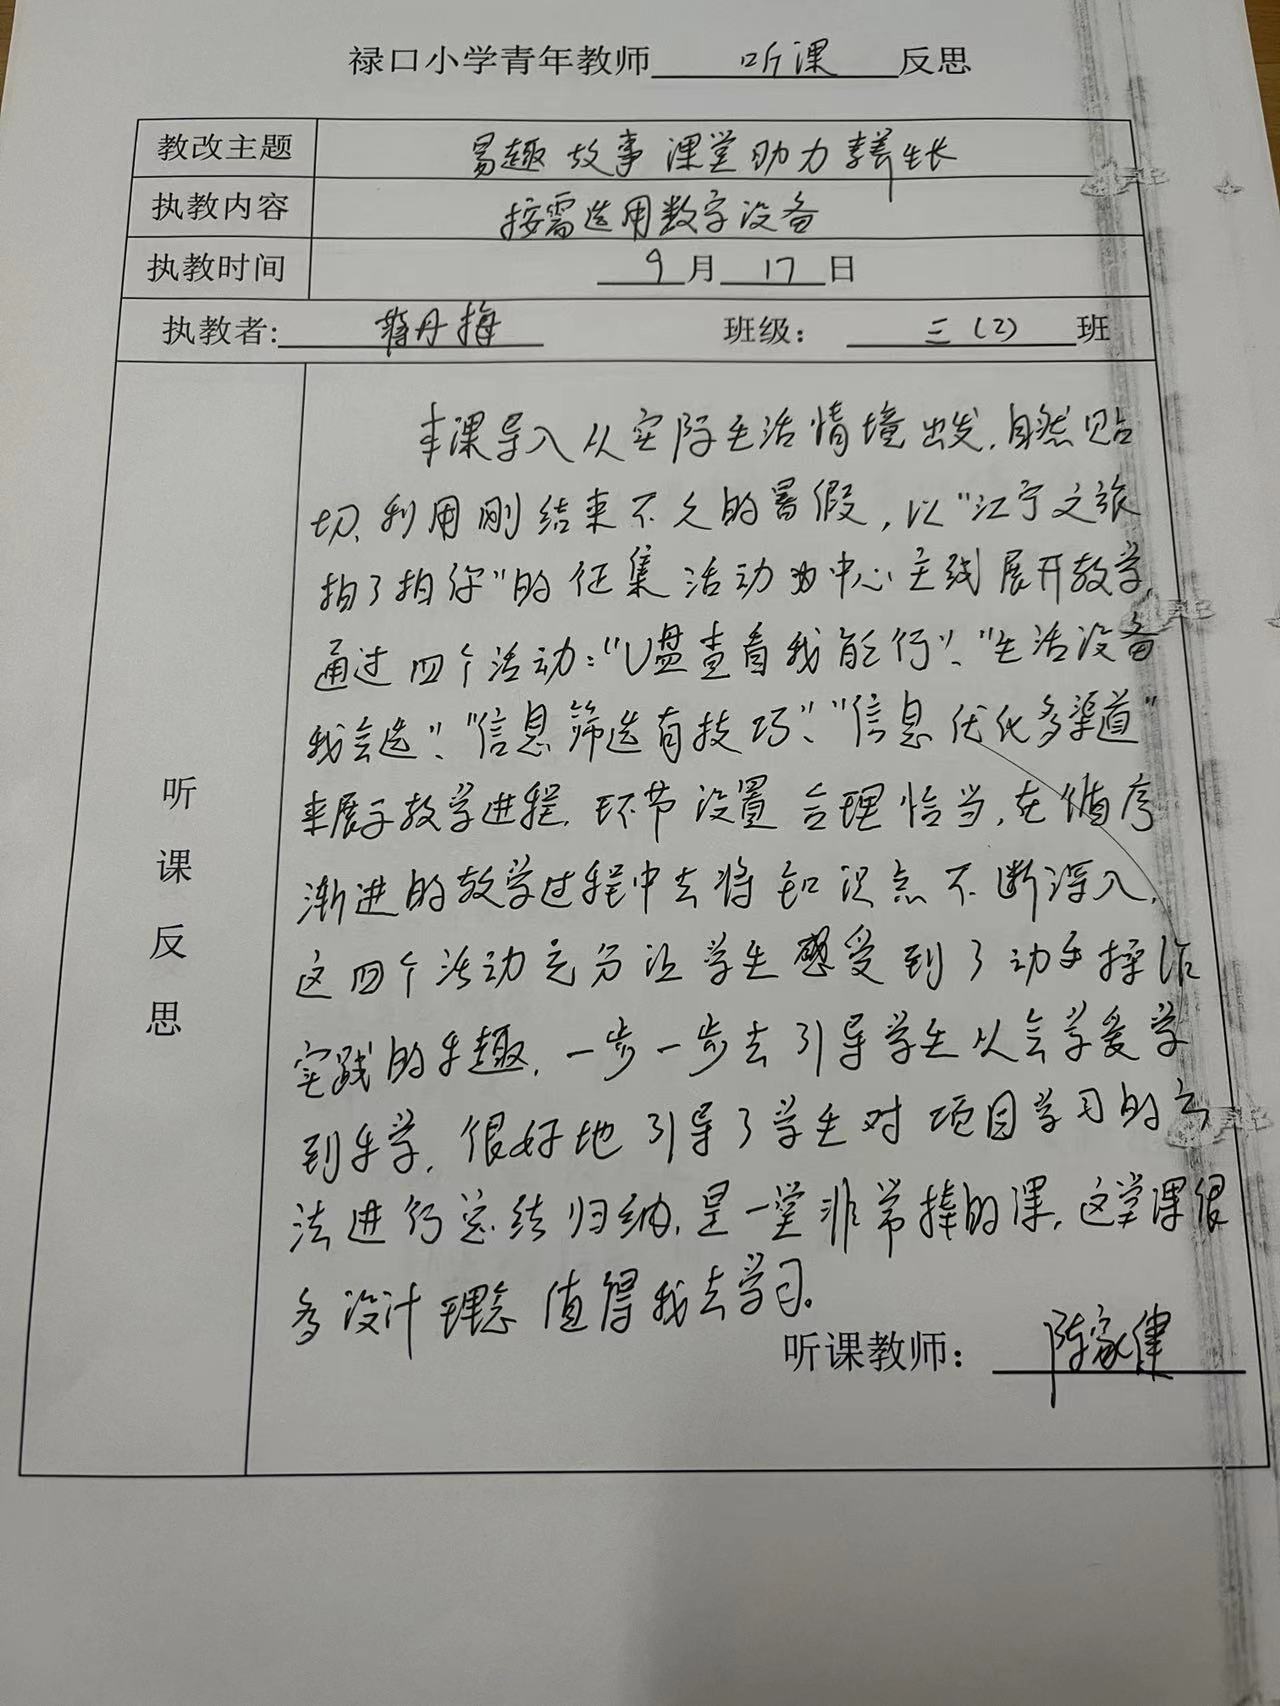 禄口小学青年教师 听课 反思
教改主题 易趣故事课堂助力素养生长
执教内容 按需选用数字设备
执教时间 9月17日
执教者: 蒋丹梅 班级: 三(2)班
听课反思
本课导入从实际生活情境出发,自然贴
切,利用刚结束不久的暑假,以"江宁文旅
拍了拍你"的征集活动为中心主线展开教学,
通过四个活动:"U盘查看我能行"、"生活设备
我会选"、"信息筛选有技巧"、"信息优化多渠道"
来展示教学进程,环节设置合理恰当,在循序
渐进的教学过程中去将知识点不断深入,
这四个活动充分让学生感受到了动手操作
实践的乐趣,一步一步去引导学生从会学爱学
到乐学,很好地引导了学生对项目学习的方
法进行总结归纳,是一堂非常棒的课,这堂课很
多设计理念值得我去学习。
听课教师: 陈家健